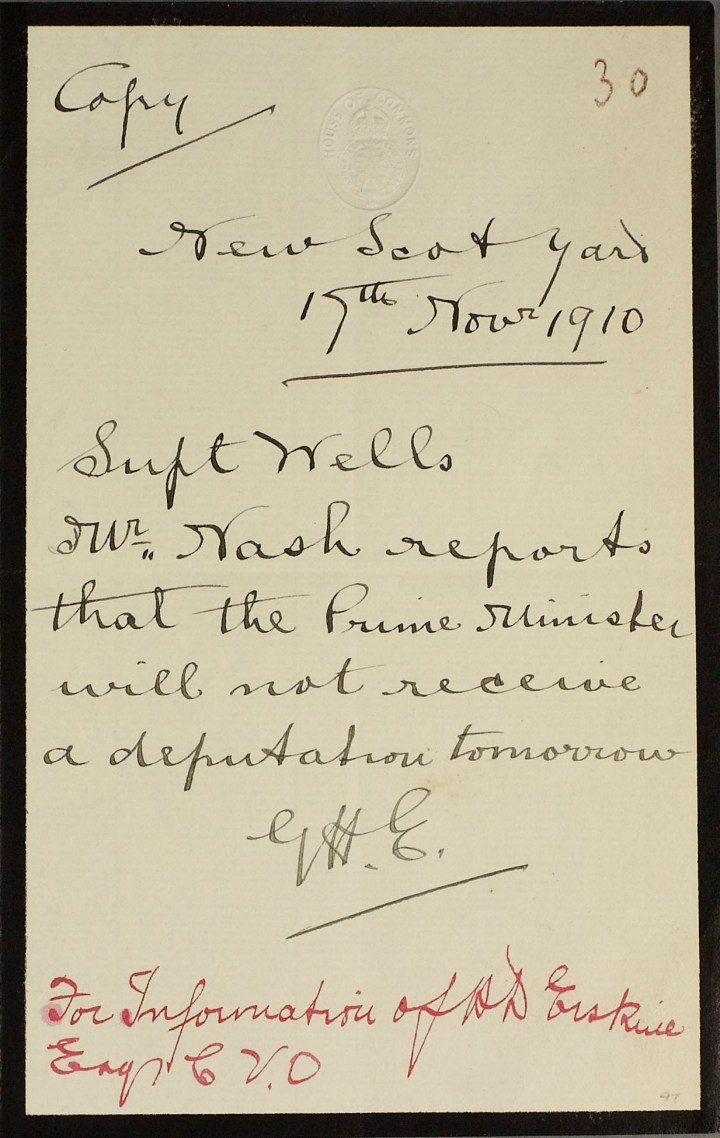 Copy
30
HOUSE OF COMMONS
New Scot Yard
17th Novr 1910
Supt Wells
Mr. Nash reports
that the Prime Minister
will not receive
a deputation tomorrow
G.H.E.
For Information of H D Erskine
Esqr C V.O